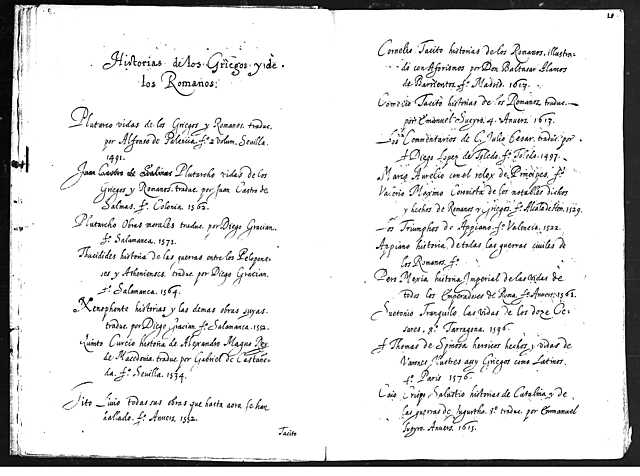 Historias de los Griegos y de
los Romanos.
Plutarco vidas de los Griegos y Romanos. traduc.
por Alfonso de Palencia. fº. 2 volum. Sevilla.
1491.
Juan Castro de Salinas Plutarcho vidas de los
Griegos y Romanos. traduc. por Juan Castro de
Salinas. fº. Colonia. 1562.
Plutarcho Obras morales traduc. por Diego Gracian.
fº. Salamanca. 1571.
Thucidides historia de las guerras entre los Pelopone-
ses y Athenienses. traduc. por Diego Gracian.
fº. Salamanca. 1564.
Xenophonte historias y las demas obras suyas.
traduc. por Diego Gracian. fº. Salamanca. 1552.
Quinto Curcio historia de Alexandro Magno Rey
de Macedonia. traduc. por Gabriel de Castañe-
da. fº. Sevilla. 1534.
Tito Livio todas sus obras que hasta aora se han
hallado. fº. Anvers. 1552.
Tacito
28
Cornelio Tacito historias de los Romanos. illustra-
do con Aforismos por Don Baltasar Alamos
de Barrientos. fº. Madrid. 1613.
Cornelio Tacito historias de los Romanos. traduc.
por Emanuel Sueyro. 4. Anvers. 1613.
Los Commentarios de C. Julio Cesar. traduc. por
f. Diego Lopez de Toledo. fº. Toledo. 1497.
Marco Aurelio con el relox de Principes. fº.
Valerio Maximo Coronista de los notables dichos
y hechos de Romanos y Griegos. fº. Alcala de Hen. 1529.
Los Triumphos de Appiano. fº. Valencia. 1522.
Appiano historia de todas las guerras civiles de
los Romanos. fº.
Pero Mexia historia Imperial de las vidas de
todos los Emperadores de Roma. fº. Anvers. 1561.
Suetonio Tranquilo las vidas de los doze Ce-
sares. 8º. Tarragona. 1596.
f. Thomas de Spinosa heroicos hechos y vidas de
Varones illustres assy Griegos como Latinos.
4º. Paris 1576.
Caio Crispo Salustio historias de Catalina y de
las guerras de Jugurtha. 8º. traduc. por Emmanuel
Sueyro. Anvers. 1615.